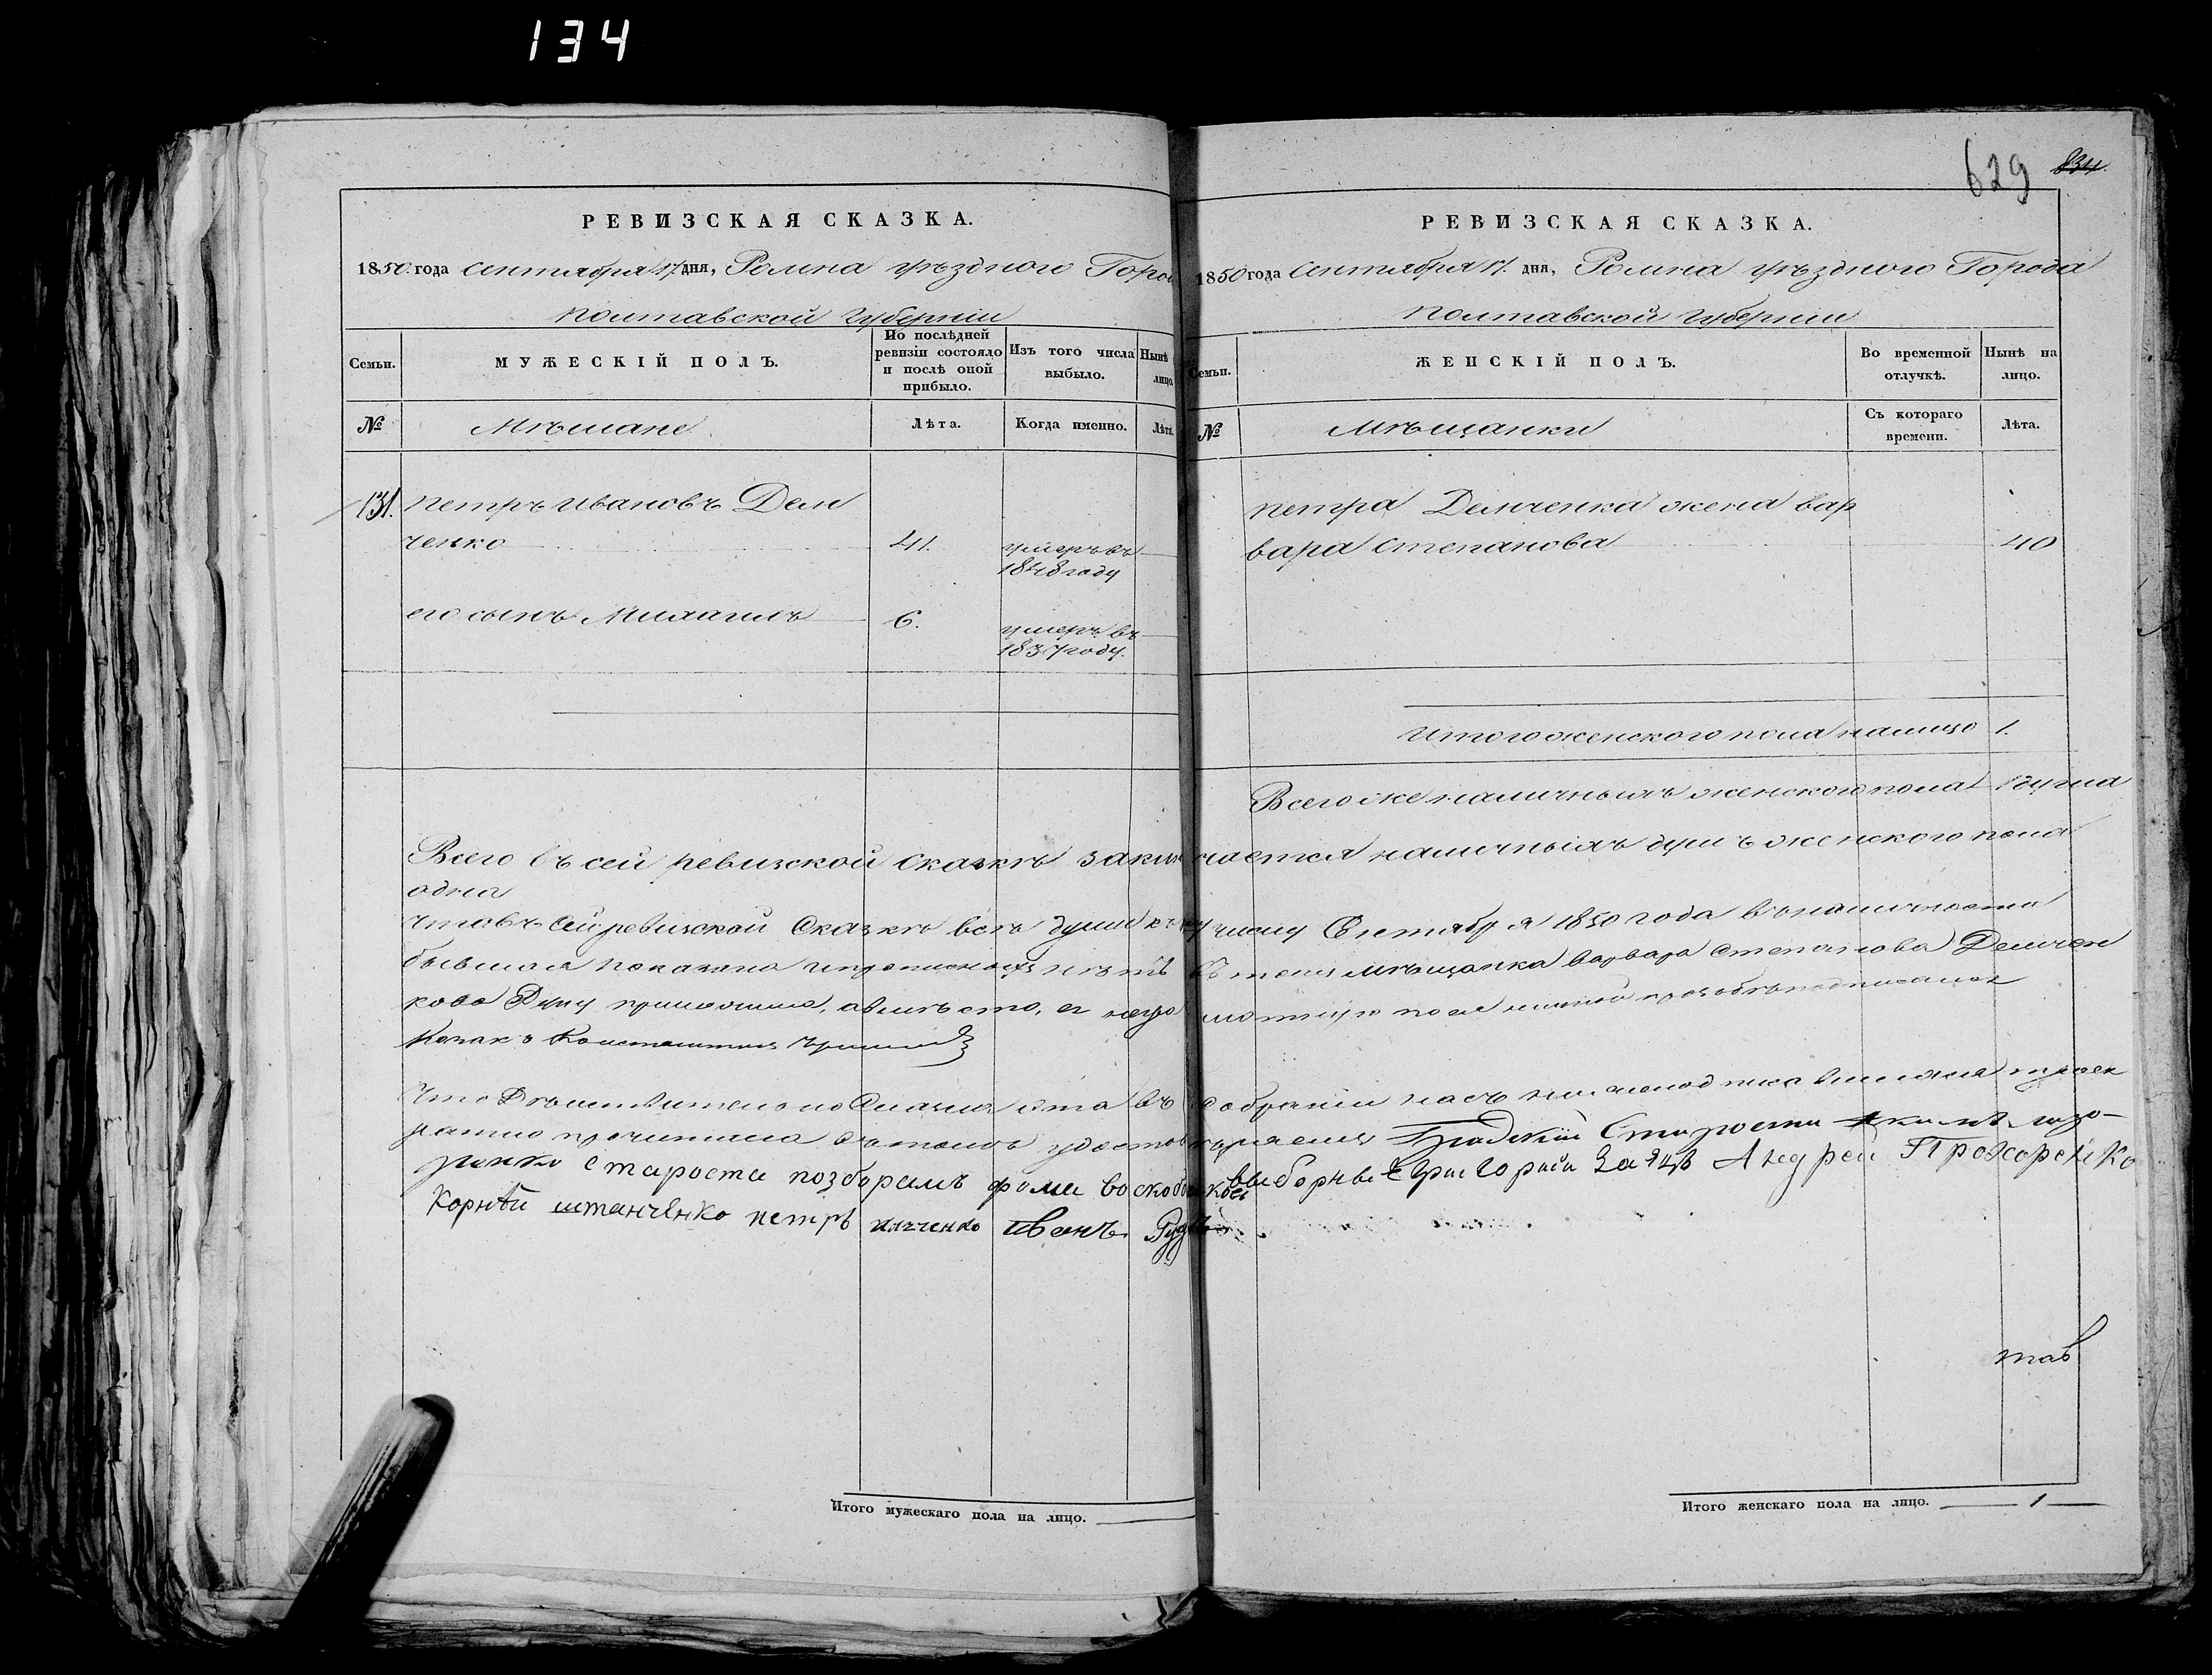 134
629 834.
РЕВИЗСКАЯ СКАЗКА.
1850 года Сентября 17 дня, Ромна уѣзднаго Город
Полтавской Губерніи
Семьи.
МУЖЕСКІЙ ПОЛЪ.
По послѣдней ревизіи состояло и послѣ оной прибыло.
Изъ того числа выбыло.
Нынѣ лицо
№
Мѣщане
Лѣта.
Когда именно.
Лѣта.
131. Петръ Ивановъ Дем
ченко 41. умеръ въ
1848 году
его сынъ Михаилъ 6. умеръ въ
1837 году.
РЕВИЗСКАЯ СКАЗКА.
1850 года Сентября 17. дня, Ромна уѣздного Города
Полтавской Губерніи
Семьи.
ЖЕНСКІЙ ПОЛЪ.
Во временной отлучкѣ.
Нынѣ на лицо.
№
Мѣщанки
Съ котораго времени.
Лѣта.
Петра Демченка жена Вар
вара Степанова 40
Итого женского пола налицо 1.
Всего же наличныхъ женского пола 1 душа
Всего въ сей ревизской сказкѣ заключается наличныхъ душъ женского пола
одна
Что въ сей ревизской Сказкѣ всѣ души къ числу Сентября 1850 года въ наличности
бывшая показана и прописныхъ нѣтъ въ томъ мѣщанка Варвара Степанова Демчен
кова руку приложила, а вмѣсто, ея неграмотную по ея прозбѣ подписался
Козакъ Константинъ
Что дѣйствительно Сказка эта въ собраніи насъ нижеподписавшихся троек
ратно прочитана въ томъ удостовѣряемъ Градскій Староста Якимъ Лазо-
ренко Староста по зборамъ Фома Воскобойниковъ выборные Григорій Заяцъ Андрей Прохоренко
Корнѣй Штанченко Петръ Ильченко Иванъ Руд
Итого мужескаго пола на лицо.
Итого женскаго пола на лицо. 1